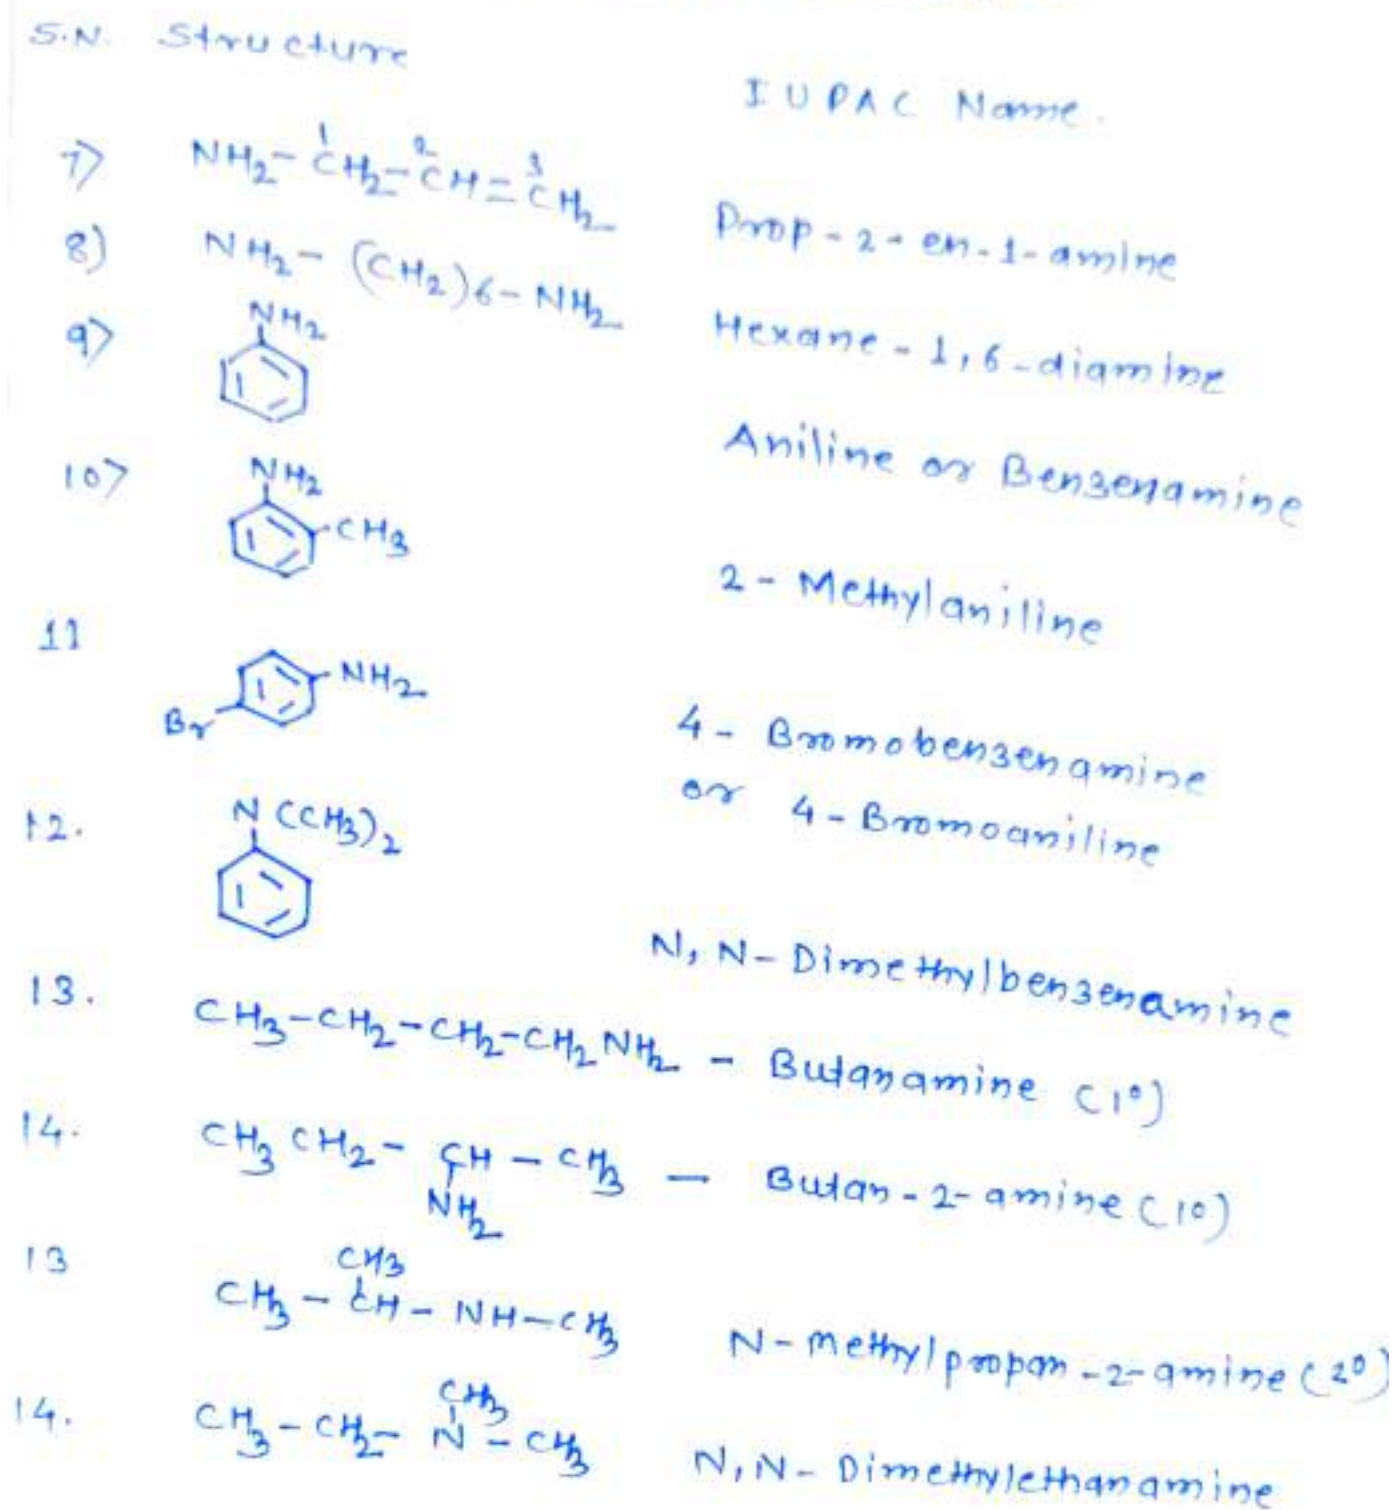 S.N. Structure IUPAC Name.
7) NH2-CH2-CH=CH2 Prop-2-en-1-amine
1 2 3
8) NH2-(CH2)6-NH2 Hexane-1,6-diamine
9) NH2 Aniline or Benzenamine
10) NH2
CH3 2-Methylaniline
11 NH2
Br 4-Bromobenzenamine
or 4-Bromoaniline
12. N(CH3)2 N,N-Dimethylbenzenamine
13. CH3-CH2-CH2-CH2NH2 - Butanamine (1°)
14. CH3CH2-CH-CH3 - Butan-2-amine (1°)
NH2
CH3
13 CH3-CH-NH-CH3 N-methylpropan-2-amine (2°)
CH3
14. CH3-CH2-N-CH3 N,N-Dimethylethanamine